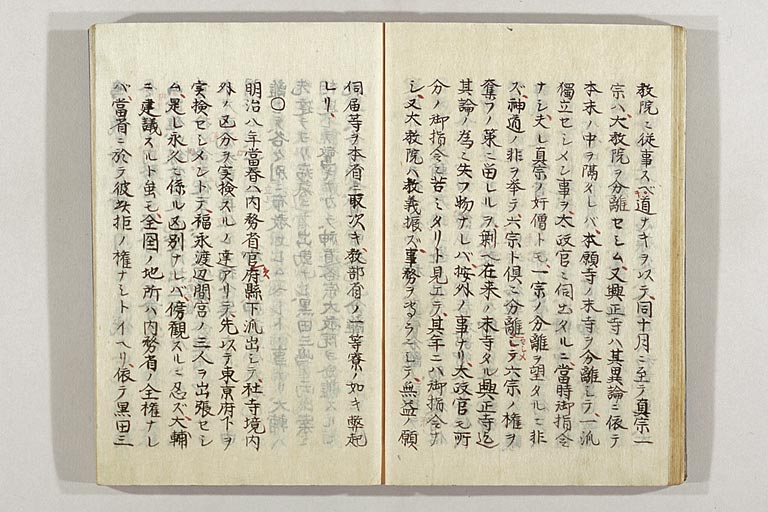 教院ニ従事スヘ道ナキヲ以テ、同十月ニ至テ真宗一
宗ハ大教院ヲ分離セシム、又興正寺ハ其異論ニ依テ
本末ノ中ヲ隔タレバ、本願寺ノ末寺ヲ分離シテ、一派
獨立セシメン事ヲ太政官ニ伺出タルニ當時御指令
ナシ、夫レ真宗ノ奸僧トモ、一宗ノ分離ヲ望タルニ非
ズ、神道ノ非ヲ挙テ六宗ト倶ニ分離シテ六宗ノ権ヲ
奪フノ策ニ出シレルヲ、剰ヘ在来ノ末寺タル興正寺迄
其論ノ為ニ失フ物ナレバ、按外ノ事ナリ、太政官モ所
分ノ御指令ニ苦ミタリト見エテ、其年ニハ御指令ナ
シ、又大教院ハ教義振ズ、事務ヲナラニシテ、無益ノ願
伺届等ヲ本省ニ取次キ、教部省ノ一等寮ノ如キ弊起
レリ、
〇
明治八年當春ハ内務省官府縣下派出シテ、社寺境内
外ノ区分ヲ実檢スルノ達アリテ、先以テ東京府下ヲ
実檢セシメントテ、福永渡辺間宮ノ三人ヲ出張セシ
ム、是レ永久ニ係ル区別ナレバ、傍観スルニ忍ズ、大輔
ニ建議スルト雖モ、全国ノ地所ハ内務省ノ全権ナレ
バ、當省ニ於テ彼是拒ノ権ナシトイヘリ、依テ黒田三